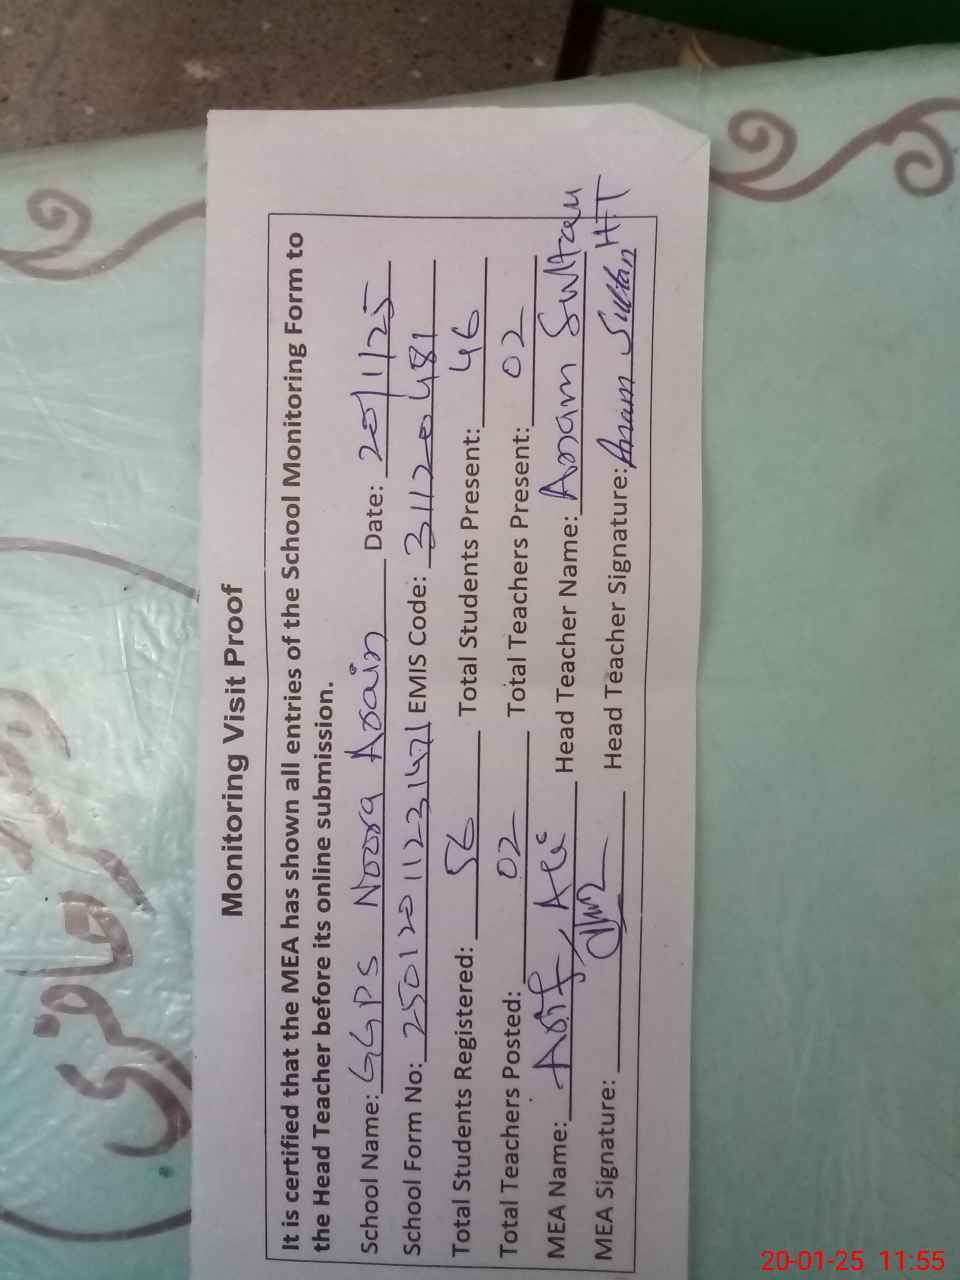 Monitoring Visit Proof
It is certified that the MEA has shown all entries of the School Monitoring Form to
the Head Teacher before its online submission.
School Name: GGPS Noora Arain Date: 20/1/25
School Form No: 25012011231471 EMIS Code: 31120481
Total Students Registered: 56 Total Students Present: 46
Total Teachers Posted: 02 Total Teachers Present: 02
MEA Name: Asif Ali Head Teacher Name: Anam Sultan
MEA Signature: Head Teacher Signature: Anam Sultan HT
20-01-25 11:55